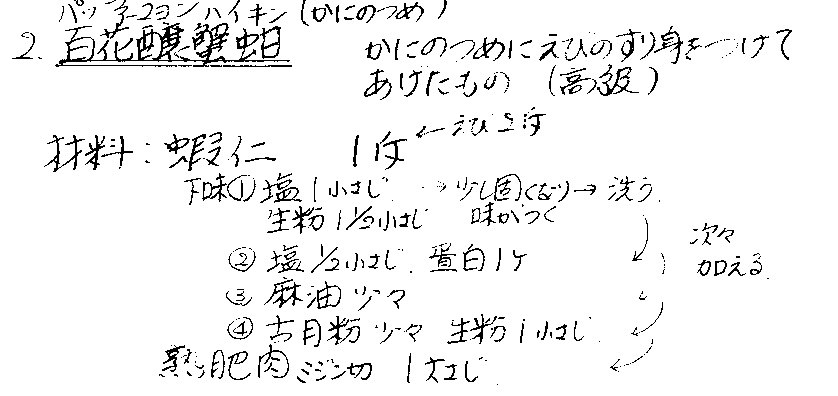 パッファーヨンハイキン(かにのつめ)
2. 百花醸蟹蚶 かにのつめにえびのすり身をつけて
あげたもの (高級)
材料:蝦仁 1斤 ←えび
下味① 塩1小さじ → 少し固くなり→洗う
生粉1 1/2小さじ 味がつく
② 塩1/2小さじ. 蛋白1ケ
次々
加える.
③ 麻油少々
④ 古月粉 少々 生粉1小さじ
熟肥肉ミジン切 1大さじ